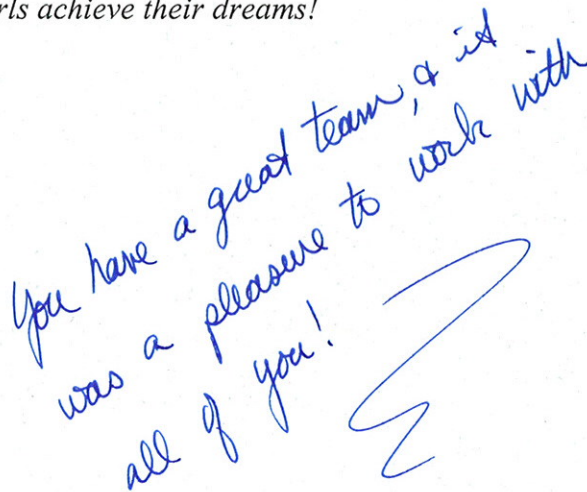 rls achieve their dreams!
You have a great team, & it
was a pleasure to work with
all of you!